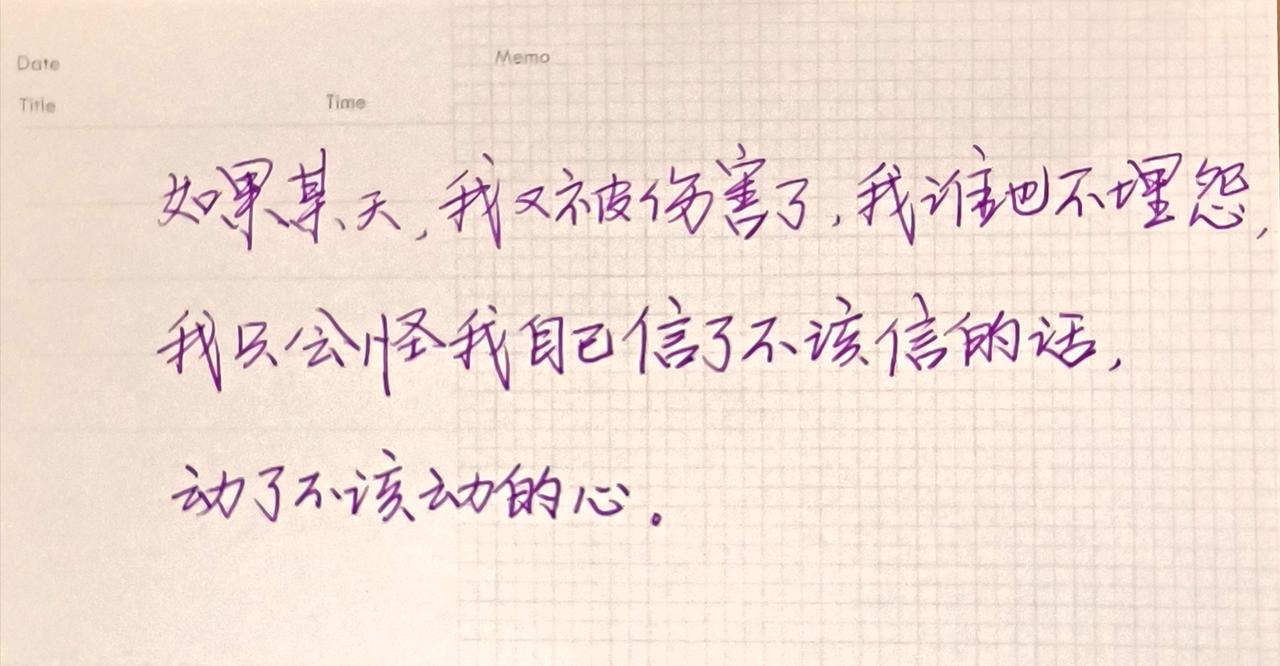 Date
Memo
Title
Time
如果某天,我又被伤害了,我谁也不埋怨,
我只会怪我自己信了不该信的话,
动了不该动的心。